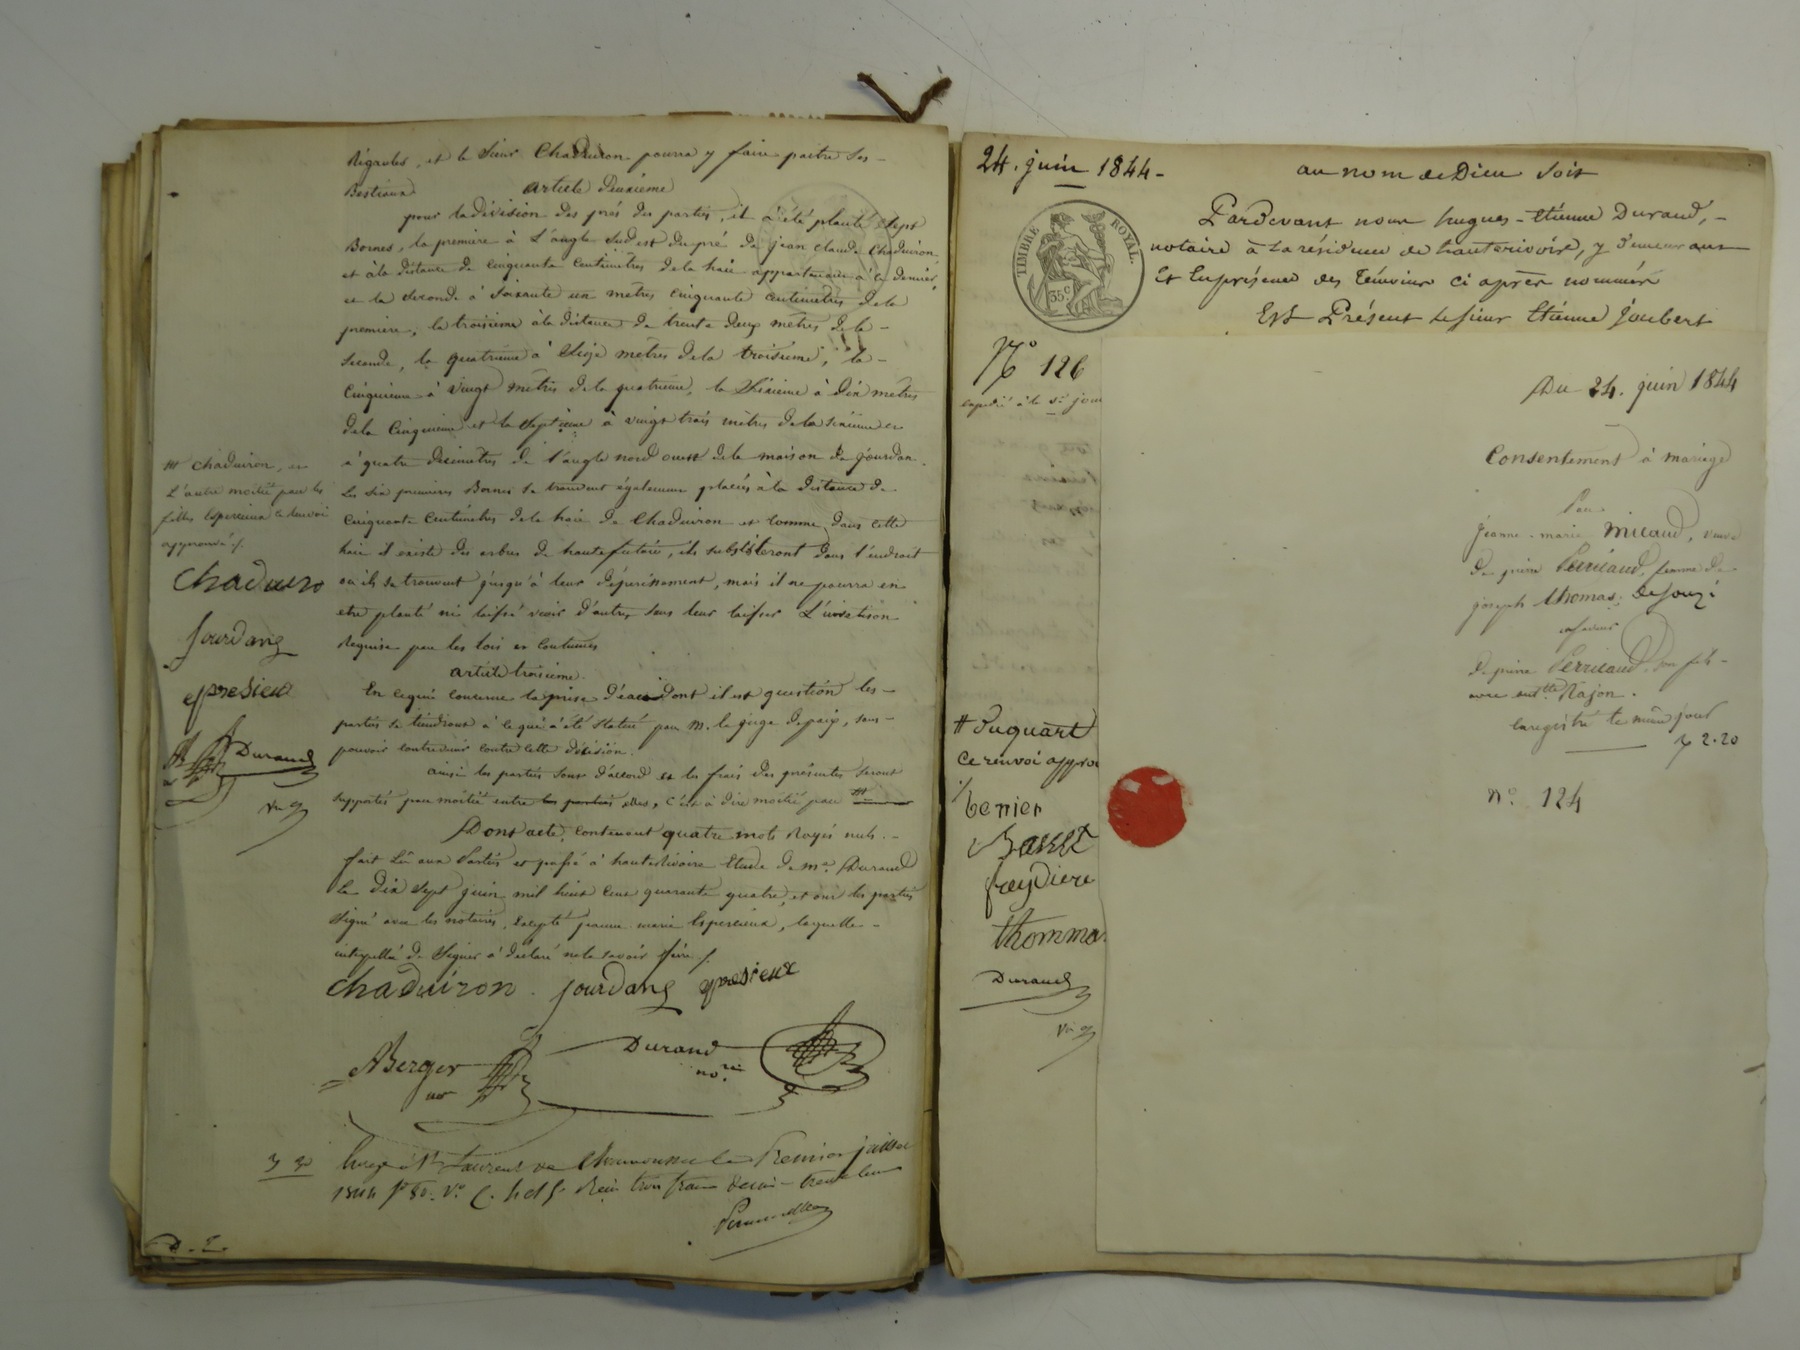 Rigaudes, et le sieur Chaduiron pourra y faire paitre ses -
Bestiaux
article Deuxieme
pour la division des prés des parties, il a été planté sept
Bornes, la premiere à l'angle sud est du pré de jean claude Chaduiron,
et à la distance de cinquante centimètres de la haie appartenant à ce dernier,
et la seconde à soixante un mètres cinquante centimètres de la
premiere, la troisieme à la distance de trente deux mètres de la -
seconde, la quatrieme à seize mètres de la troisieme, la -
Cinquieme à vingt mètres de la quatrieme, la sixieme à dix mètres
de la Cinquieme et la septieme à vingt trois mètres de la sixieme et
à quatre decimètres de l'angle nord ouest de la maison de jourdan.
Les six premieres Bornes se trouvent également placées à la distance de
cinquante centimètres de la haie de Chaduiron et comme dans cette
haie il existe des arbres de haute futaie, ils subsisteront dans l'endroit
où ils se trouvent jusqu'à leur dépérissement, mais il ne pourra en
etre planté ni laissé venir d'autres sans leur laisser
Requise par les lois et coutumes
article troisieme.
En ce qui concerne la prise d'eau dont il est question les -
parties se tiendront à ce qui a été statué par m. le juge de paix, sans -
pouvoir contrevenir contre cette décision.
ainsi les parties sont d'accord et les frais des présentes seront
supportés par moitié entre les parties elles, c'est à dire moitié par #
Dont acte, contenant quatre mots rayés nuls. -
fait lû aux Parties et passé à hauterivoire Etude de me. Durand
le dix sept juin mil huit cent quarante quatre, et ont les parties
signé avec les notaires, excepté jeanne marie Esperieux, laquelle -
interpellée de signer a déclaré ne le savoir faire ./.
chaduiron. jourdang epresieux
ABerger
Durand
nore
# chaduiron, et
L'autre moitié par les
filles Esperieux ce renvoi
approuvé ./.
Chaduiro
Jourdang
epresieux
Durand
Enregé à St Laurent de Chamousset le Premier juillet
1844 fo 80. Vo C. Reçu trois francs trente
24. juin 1844 -
au nom de Dieu soit
TIMBRE ROYAL.
35 c.
Pardevant nous hugues - Etienne Durand, -
notaire à la résidence de hauterivoire, y demeurant
Et En présence des Témoins ci après nommés
Est Présent le sieur Etienne Joubert
No 126
expedié à le sr jou
# Puquart
Ce renvoi approu
./.
Venier
Basset
freydiere
thomma
Durand
Du 24. juin 1844
Consentement à mariage
Par
jeanne - marie Micaud, veuve
de pierre Perricaud, femme de
joseph thomas, de Souzi
en faveur
de pierre Perricaud son fils -
avec melle Rajon.
Enregistré le même jour
2.20
no. 124